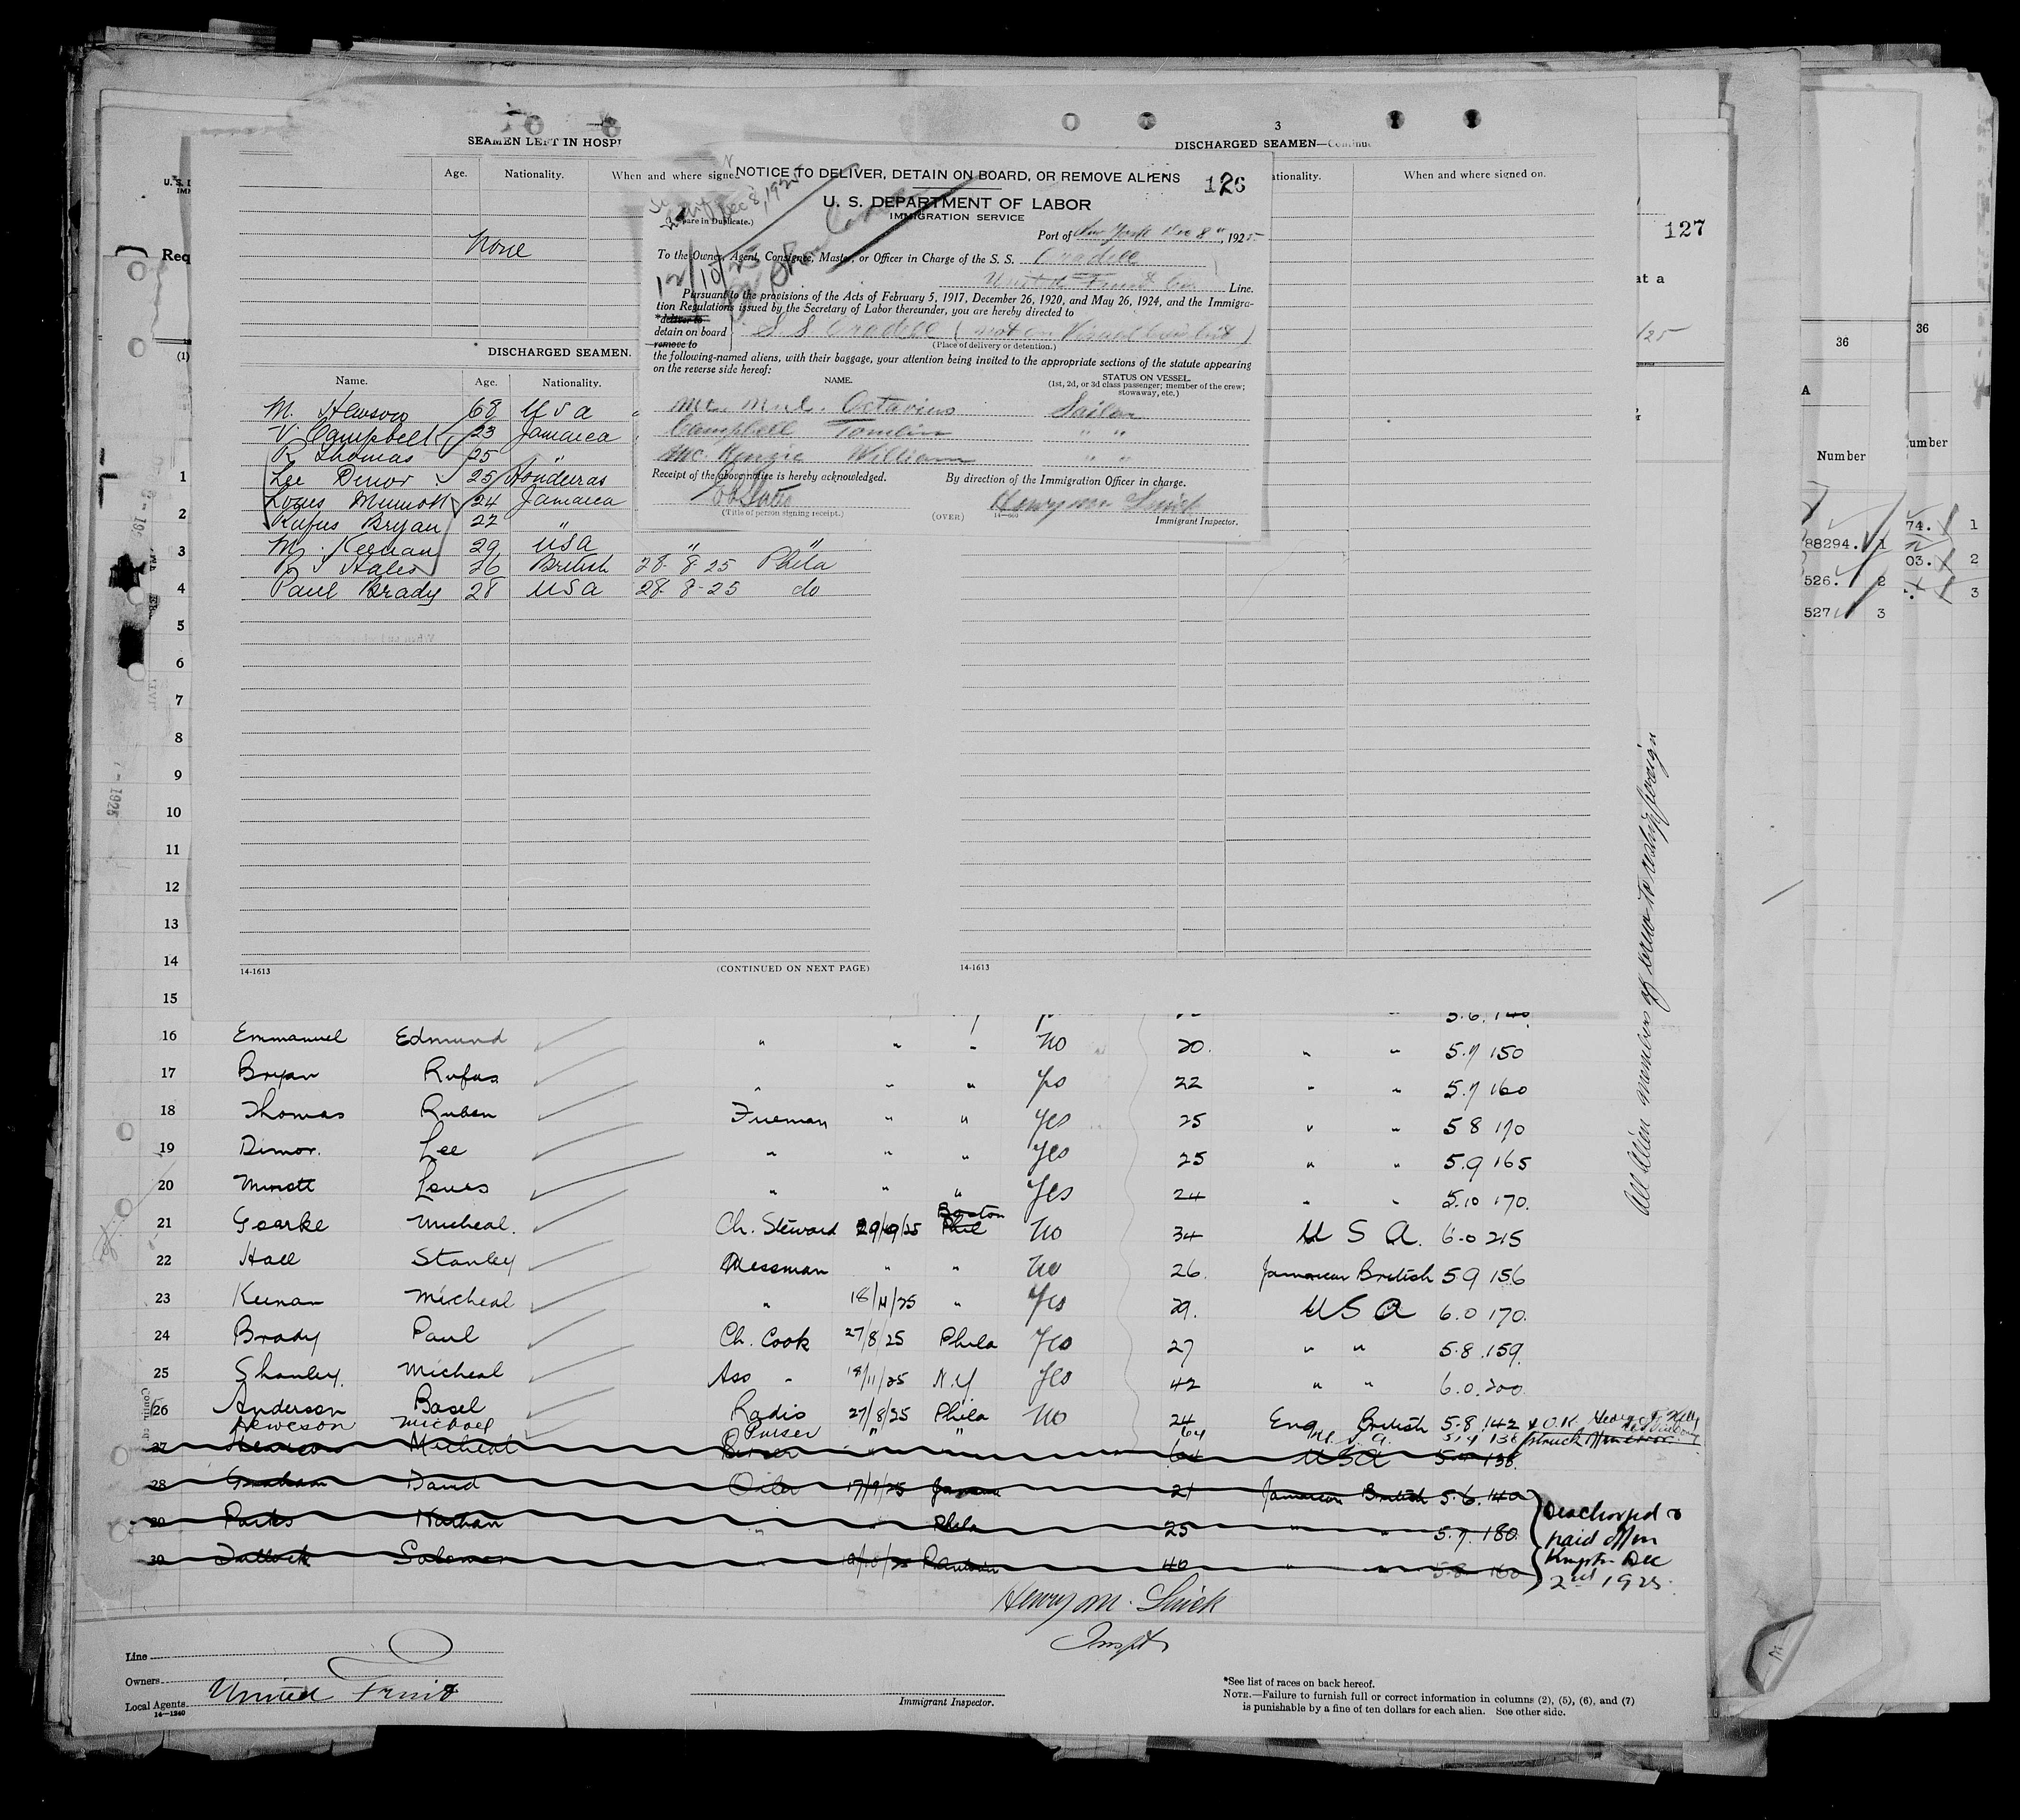 3
SEAMEN LEFT IN HOSPI
DISCHARGED SEAMEN—Continue
Age. Nationality. When and where signed
None
NOTICE TO DELIVER, DETAIN ON BOARD, OR REMOVE ALIENS
126
U. S. DEPARTMENT OF LABOR
IMMIGRATION SERVICE
pare in Duplicate.)
Dec 8, 1925
12/10/25
Port of New York Dec 8", 1925
To the Owner, Agent, Consignee, Master, or Officer in Charge of the S. S. Oradell
United Fruit Co Line.
Pursuant to the provisions of the Acts of February 5, 1917, December 26, 1920, and May 26, 1924, and the Immigra-
tion Regulations issued by the Secretary of Labor thereunder, you are hereby directed to
*deliver to
detain on board
remove to
S. S. Oradell (not on
(Place of delivery or detention.)
the following-named aliens, with their baggage, your attention being invited to the appropriate sections of the statute appearing
on the reverse side hereof:
NAME.
STATUS ON VESSEL.
(1st, 2d, or 3d class passenger; member of the crew;
stowaway, etc.)
Octavius Sailor
Campbell Tomlin " "
Mc. Kenzie William " "
Receipt of the above notice is hereby acknowledged.
By direction of the Immigration Officer in charge.
(Title of person signing receipt.)
(OVER)
Henry M. Smick
Immigrant Inspector.
ationality. When and where signed on.
127
at a
/25
36
A
Number
88294. 1
526. 2
527 3
36
umber
74. 1
03. 2
3
U. S. D
Req
(1)
DISCHARGED SEAMEN.
Name. Age. Nationality.
M. Hewson 68 U S A
V. Campbell 23 Jamaica
R Thomas 25 "
Lee Dinor 25 Honduras
Louis Minott 24 Jamaica
Rufus Bryan 22 "
M. Keenan 29 USA " "
Hales 26 British 28-8-25 Phila
Paul Brady 28 USA 28-8-25 do
14-1613
(CONTINUED ON NEXT PAGE)
14-1613
1
2
3
4
5
6
7
8
9
10
11
12
13
14
15
5.6. 140
16 Emmanuel Edmund " " " No 20. " " 5.7 150
17 Bryan Rufus " " " Yes 22 " " 5.7 160
18 Thomas Ruben Fireman " " Yes 25 " " 5 8 170
19 Dinor. Lee " " " Yes 25 " " 5.9 165
20 Minott Louis " " " Yes 24 " " 5.10 170.
21 Goarke Micheal. Ch. Steward 29/9/25 Boston Phil No 34 U S A. 6-0 215
22 Hall Stanley Messman " " No 26. Jamaican British 5 9 156
23 Keenan Micheal " 18/11/25 " Yes 29. U S A 6.0 170.
24 Brady Paul Ch. Cook 27/8/25 Phila Yes 27 " " 5.8.159.
25 Shanley. Micheal Ass " 18/11/25 N.Y. Yes 42 " " 6.0.200
26 Anderson Basel Radio 27/8/25 Phila No 24 Eng British 5.8.142
Heweson Michael Purser " " 64 U. S. A. 5.4 138
27 Hewson Micheal Purser 64 U S A 5.4 138.
28 Graham David Oiler 17/9/25 21 Jamaican British 5.6.140
29 Parks Nathan " " Phila 25 " " 5.7.180.
30 Tullock Solomon " 40 " " 5.8 160
Discharged &
paid off in
Kngstn Dec
2nd 1925.
All Alien members of crew to reship foreign
Henry M. Smick
Inspt
Line
Owners
Local Agents United Fruit
14—1240
Immigrant Inspector.
*See list of races on back hereof.
NOTE.—Failure to furnish full or correct information in columns (2), (5), (6), and (7)
is punishable by a fine of ten dollars for each alien. See other side.